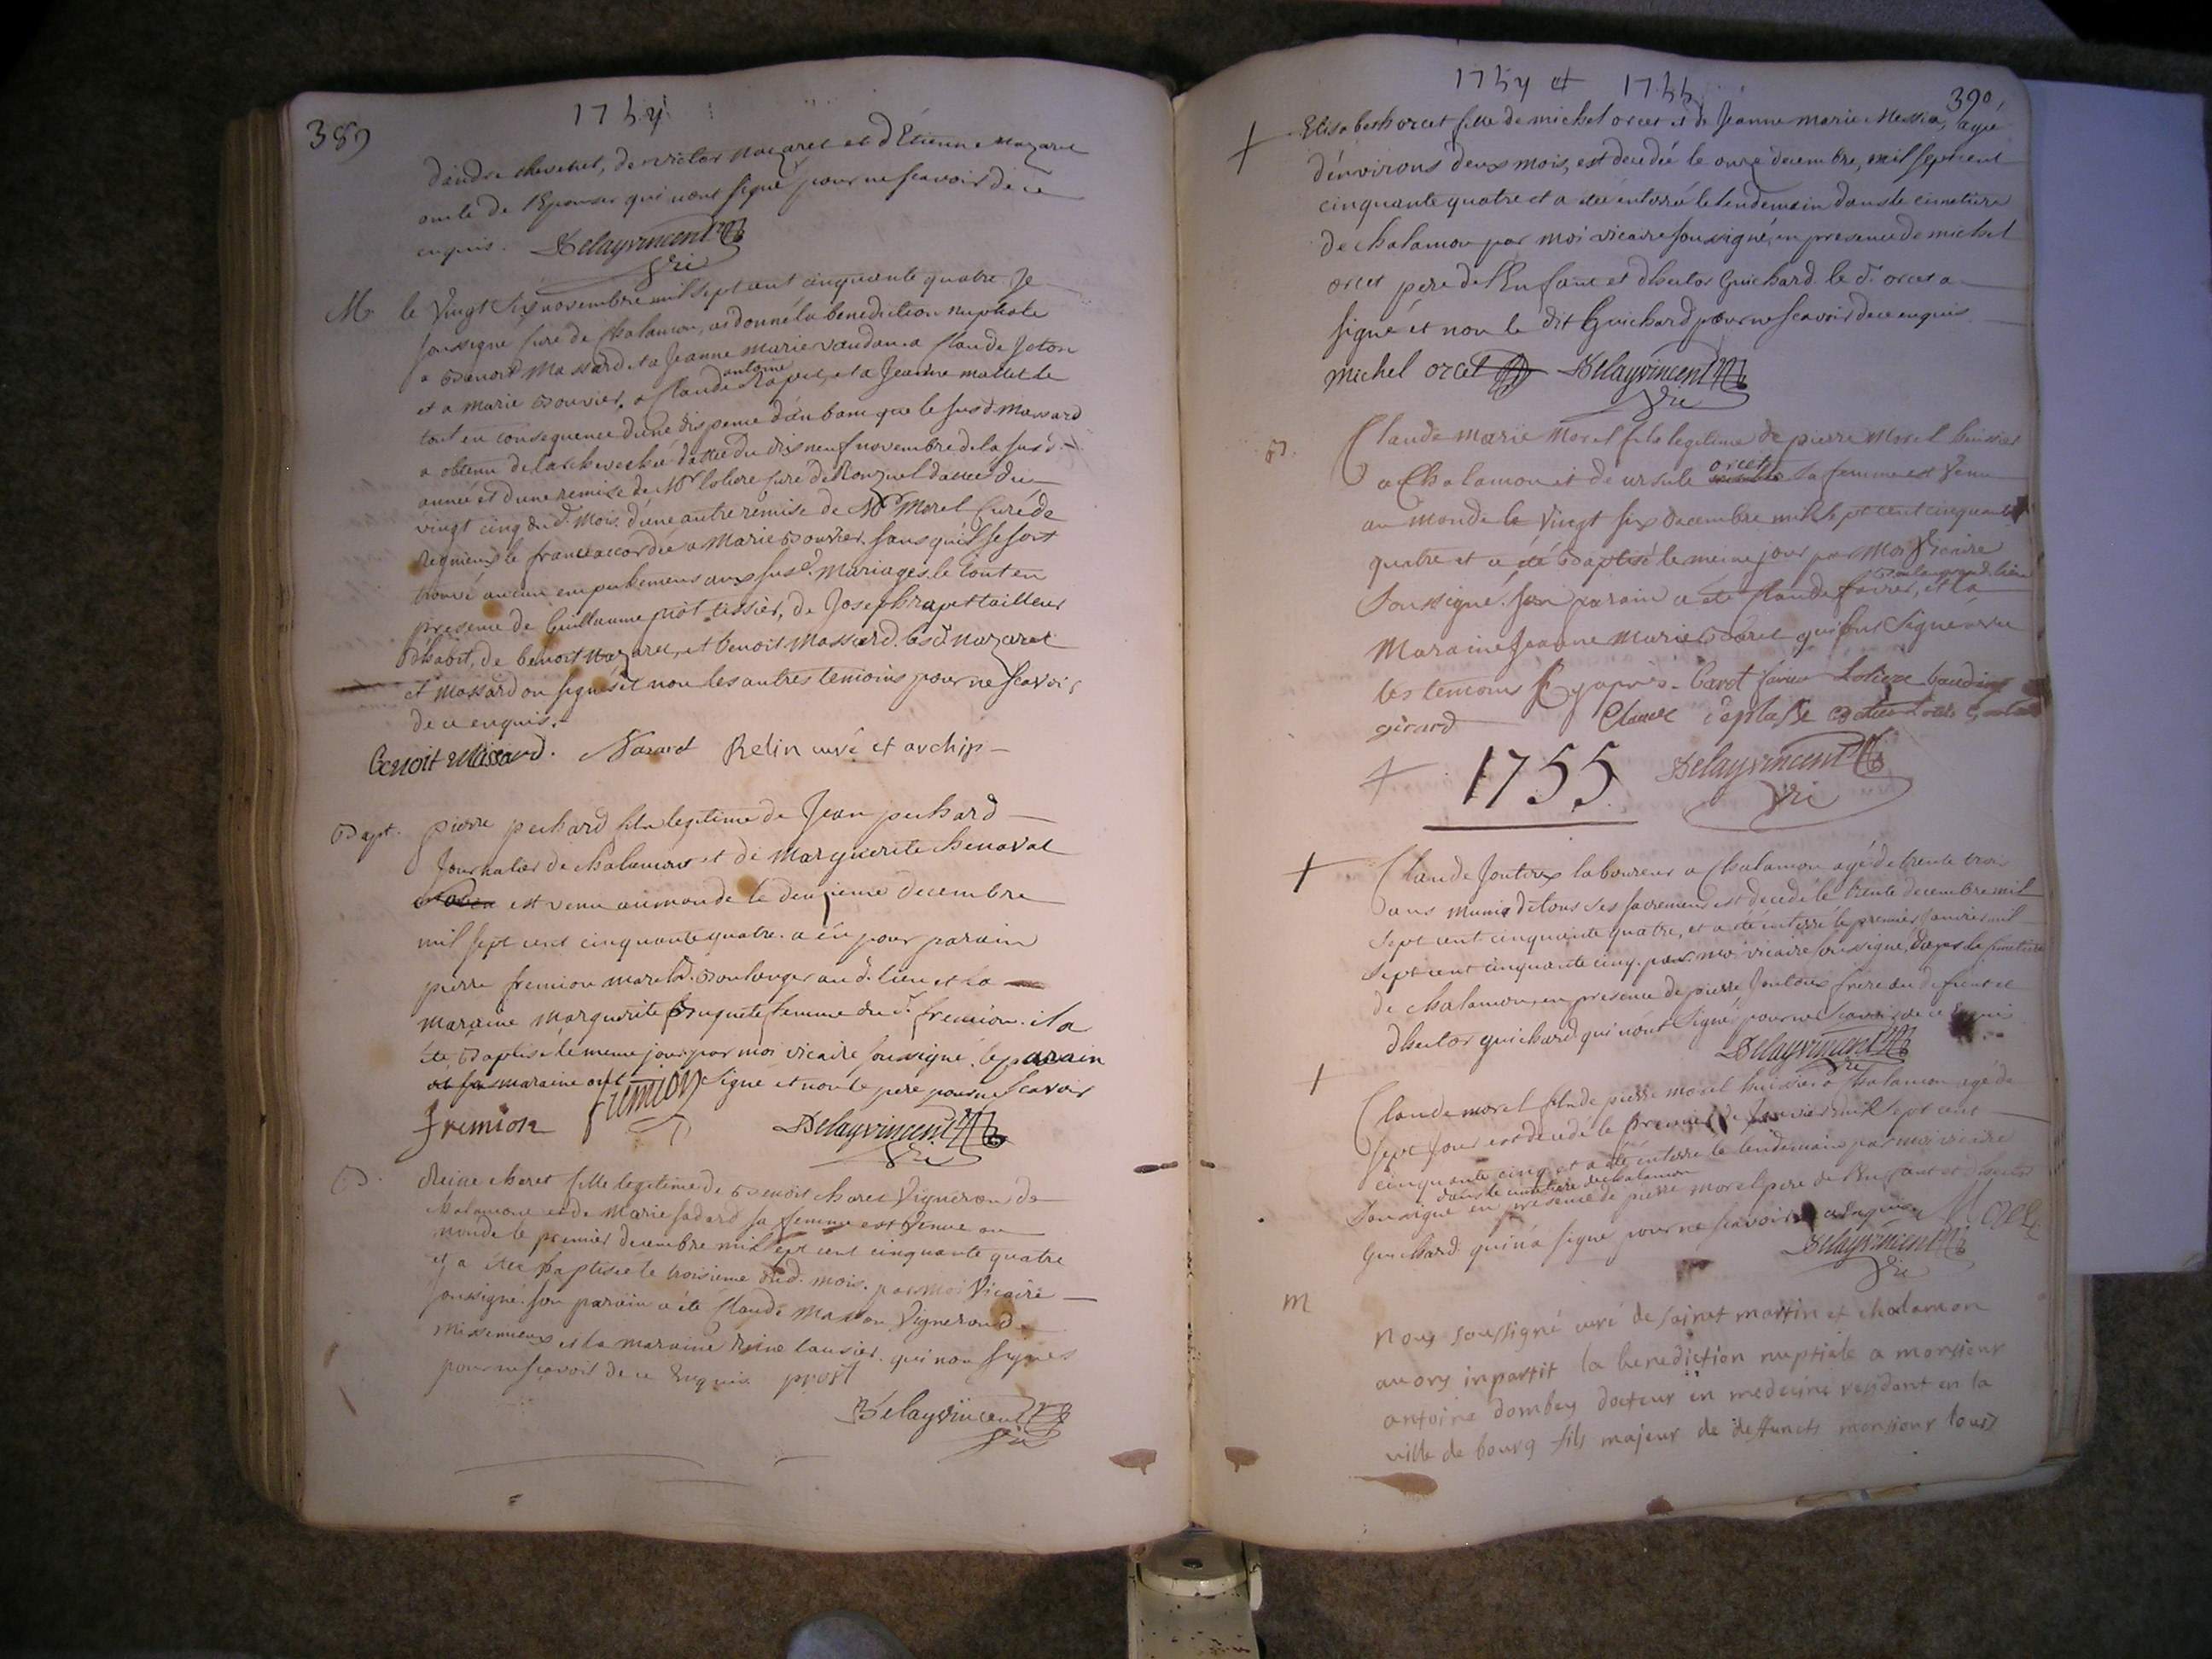 389
1754
d'andre chevenet, de victor nazaret et d'Etienne Nazaret
oncle de l'Epouser qui n'ont signé pour ne scavoir de ce
enquis. Delayvincent
Vri
M. le Vingt six novembre mil sept cent cinquante quatre Je
soussigné Curé de Chalamon, ai donné la benediction nuptiale
a Benoit Massard, et a Jeanne Marie vaudan a Claude Jeton
et a Marie Bouvier, a Claude antoine Rapet, et a Jeanne mallet le
tout en consequence d'une dispense d'un banc que le susd. Massard
a obtenu de l'archeveché dattée du dix neuf novembre de la susd.
année et d'une remise de Mr loliere Curé de dattée du
vingt cinq du d. mois. d'une autre remise de Mr Morel Curé de
Rigneux le franc accordée a Marie Bouvier. sans qu'il se soit
trouvé aucun empechemens aux susd. Mariages. le tout en
presence de Guillaume piot tissier, de Joseph rapet tailleur
d'habit, de benoit Nazaret, et benoit Massard. lesd. nazaret
et Massard on signés et non les autres temoins pour ne scavoir
de ce enquis.
Benoit Massard. Nazaret Relin curé et archip
Bapt. pierre pechard fils legitime de Jean pechard
Journalier de chalamont et de Marguerite chenaval
est venu au monde le deuzieme decembre
mil sept cent cinquante quatre. a eu pour parain
pierre fremion march. Boulanger aud. lieu et la
maraine Marguerite Buquete femme dud. fremion. il a
été Baptisé le meme jour par moi vicaire soussigné. le parain
et sa maraine ont signé et non le pere pour ne scavoir
fremion fremion Delayvincent
Vri
B. Reine charet fille legitime de Benoit charet Vigneron de
chalamont et de Marie sadard sa femme est venue au
monde le premier decembre mil sept cent cinquante quatre
et a étée baptisée le troisieme dud. mois. par moi Vicaire
soussigné. son parain a été Claude Masson Vigneron de
Miximieux et la maraine reine lausier. qui non signés
pour ne scavoir de ce Enquis prost
Delayvincent
Vri
1754 et 1755
390
+ Elisabeth orcet fille de michel orcet et de Jeanne marie Messia, agée
d'environs deux mois, est decedée le onze decembre, mil sept cent
cinquante quatre et a étée enterrée le lendemain dans le cimetiere
de chalamon par moi vicaire soussigné, en presence de michel
orcet pere de l'Enfant et d'hector Guichard. le d. orcet a
signé et non le dit Guichard pour ne scavoir de ce enquis
michel orcet Delayvincent
Vri
B. Claude Marie Morel fils legitime de pierre Morel huissier
a Chalamon et de ursule orcet sa femme est Venu
au monde le Vingt six decembre mil sept cent cinquante
quatre et a été Baptisé le meme jour par moi Vicaire
soussigné. son parain a été Claude favier, et la
Maraine Jeanne Marie Caret qui ont signé avec
les temoins Cy apris. Caret favier Loliere baudin
girard Claude
+ 1755 Delayvincent
Vri
+ Claude Jontoux laboureur a Chalamon agé de trente trois
ans munis de tous ses sacremens est decedé le trente decembre mil
sept cent cinquante quatre, et a été enterré le premier Janvier mil
sept cent cinquante cinq. par moi vicaire soussigné, dans le cimetiere
de chalamon, en presence de pierre Jontoux frere du defunt et
d'hector guichard qui n'ont signés pour ne scavoir de ce enquis
Delayvincent
Vri
+ Claude morel fils de pierre morel huissier a Chalamon agé de
sept jour est decedé le premier de Janvier mil sept cent
cinquante cinq et a été enterré le lendemain par moi vicaire
dans le cimetiere de chalamon
soussigné en presence de pierre morel pere de l'Enfant et d'hector
Guichard qui n'a signé pour ne scavoir enquis Morel
Delayvincent
Vri
m nous soussigné curé de saint martin et chalamon
avons inpartit la benediction nuptiale a monsieur
antoine dombey docteur en medecine residant en la
ville de bourg fils majeur de deffuncts monsieur louis